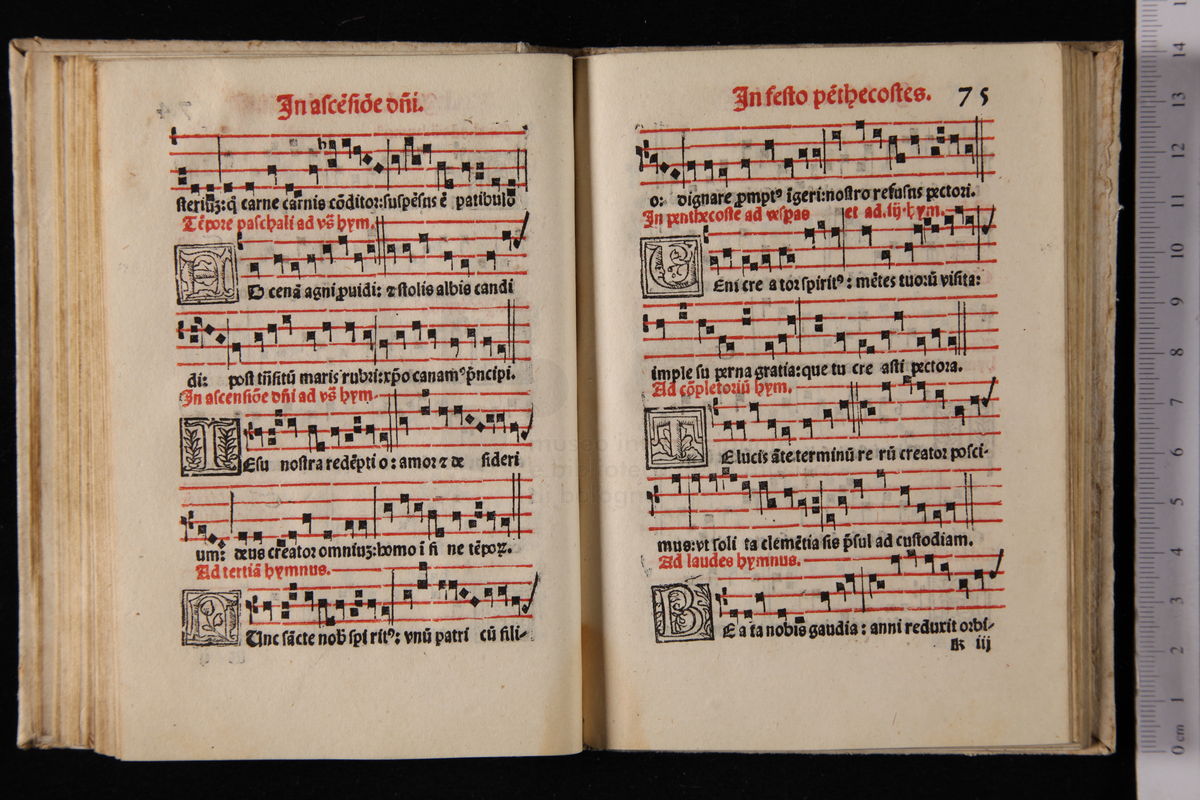 In ascẽsiõe dñi.
steriuʒ: q̃ carne carnis cõditor: suspẽsus ẽ patibulo
Tẽpore paschali ad vs̃ hym.
D cenã agni ꝓuidi: ⁊ stolis albis candi
di: post trãsitũ maris rubri: xp̃o canamꝰ p̃ncipi.
In ascensiõe dñi ad vs̃ hym.
I Esu nostra redẽpti o: amor ⁊ de sideri
um: deus creator omniuʒ: homo ĩ fi ne tẽpoꝝ.
Ad tertiã hymnus.
N Unc sãcte nob̃ spi ritꝰ: vnũ patri cũ fili-
In festo pẽthecostes. 75
o: dignare ꝓmptꝰ ĩgeri: nostro refusus pectori.
In penthecoste ad vespas et ad. iij. hym.
Eni cre a tor spiritꝰ: mẽtes tuorũ visita:
imple su perna gratia: que tu cre asti pectora.
Ad cõpletoriũ hym.
T E lucis ãte terminũ re rũ creator posci-
mus: vt soli ta clemẽtia sis p̃sul ad custodiam.
Ad laudes hymnus.
B E a ta nobis gaudia: anni reduxit orbi-
k iij
museo
bologn
14
13
12
11
10
9
8
7
6
5
4
3
2
1
0 cm